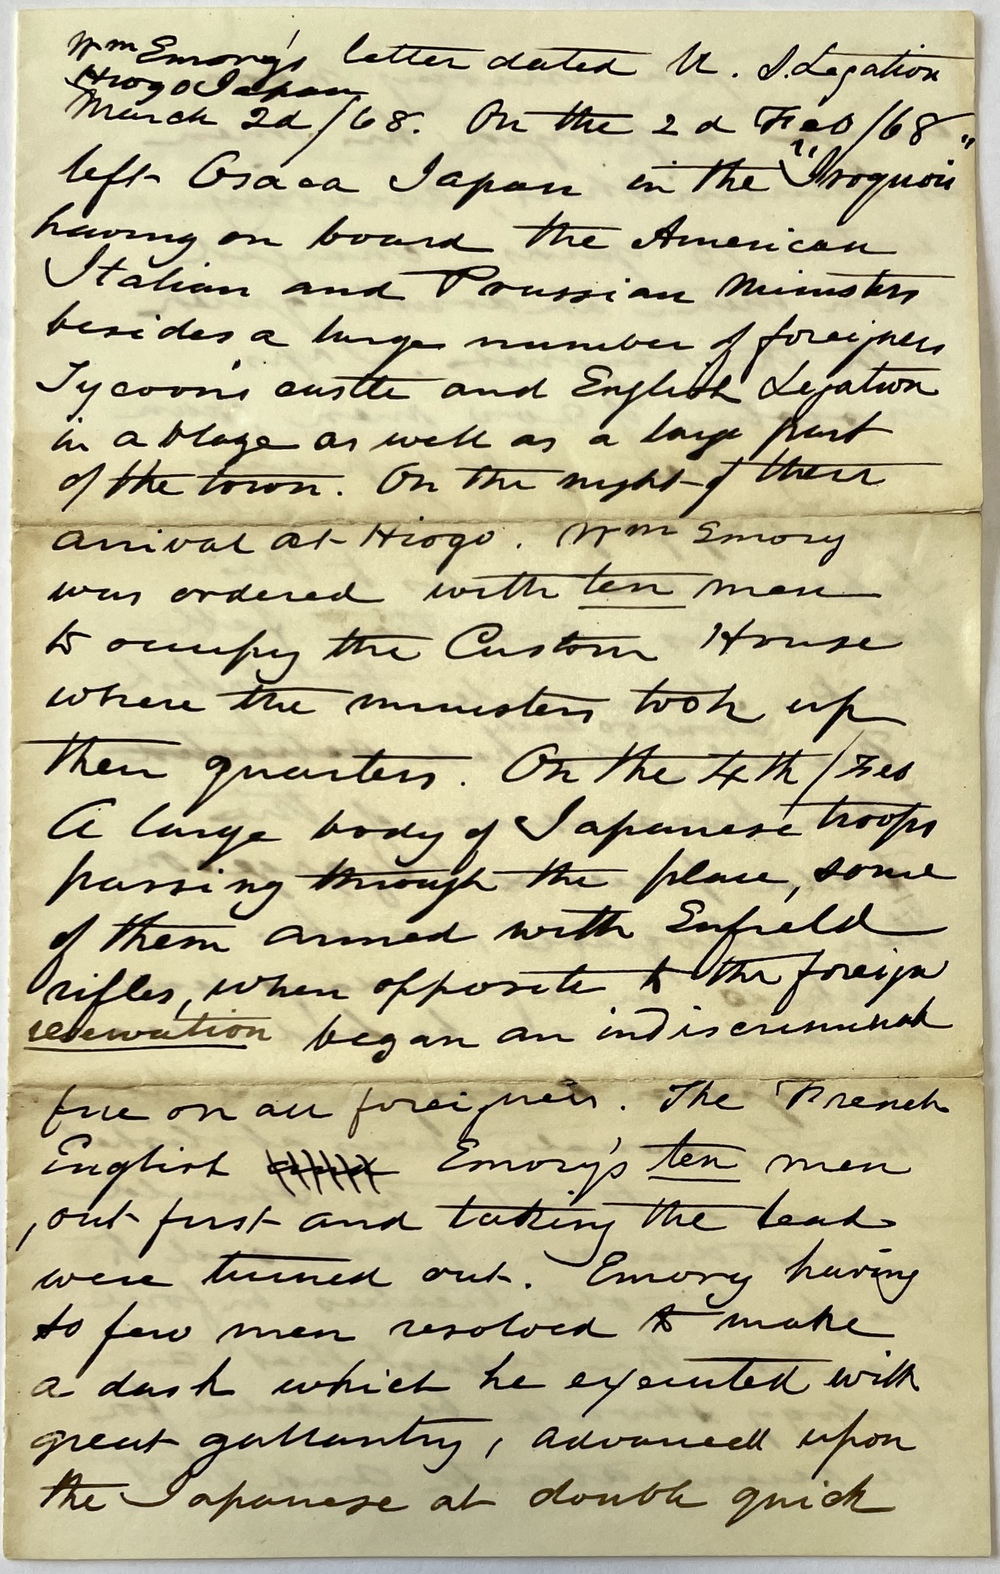 Wm Emory's letter dated U. S. Legation
Hiogo Japan
March 2d/68. On the 2d Feb/68 "
left Osaca Japan in the "Iroquois
having on board the American
Italian and Prussian Ministers
besides a large number of foreigners
Tycoon's castle and English Legation
in a blaze as well as a large part
of the town. On the night of their
arrival at Hiogo. Wm Emory
was ordered with ten men
to occupy the Custom House
where the ministers took up
their quarters. On the 4th/Feb
A large body of Japanese troops
passing through the place, some
of them armed with Enfield
rifles, when opposite to the foreign
reservation began an indiscriminate
fire on all foreigners. The French
English and Emory's ten men
, out first and taking the lead
were turned out. Emory having
to few men resolved to make
a dash which he executed with
great gallantry, advanced upon
the Japanese at double quick